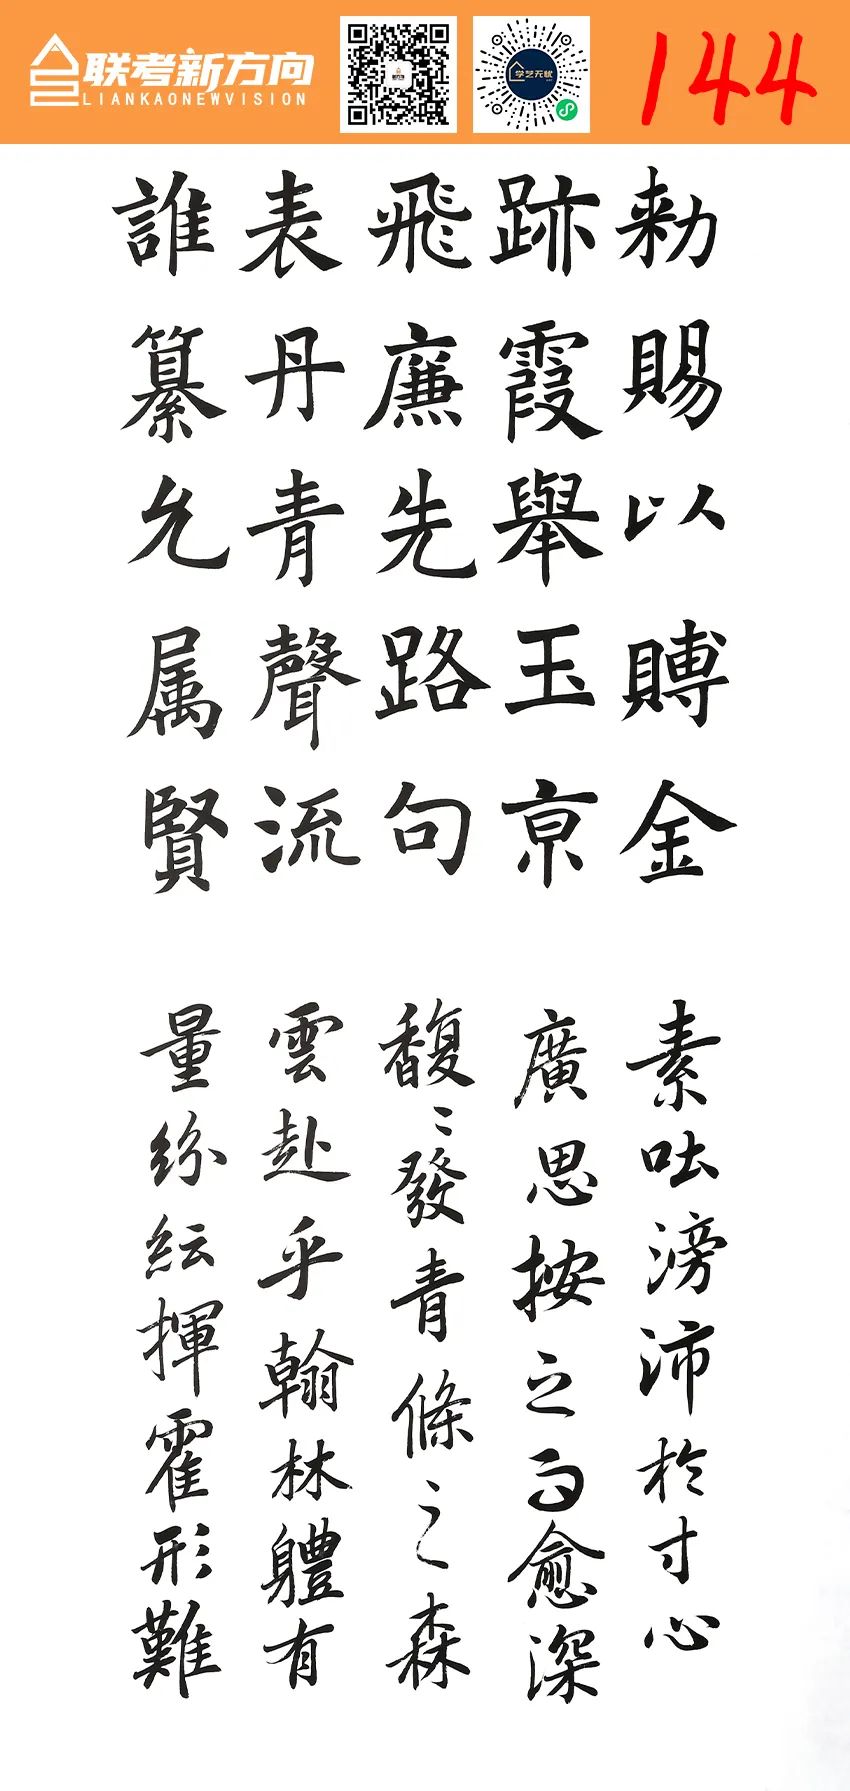 联考新方向
LIANKAONEWVISION
学艺无忧
144
勑賜以賻金
跡霞舉玉亰
飛廉先路句
表丹青聲流
誰纂允属賢
素吐滂沛於寸心
廣思按之而愈深
馥〻發青條之森
雲赴乎翰林體有
量紛紜揮霍形難